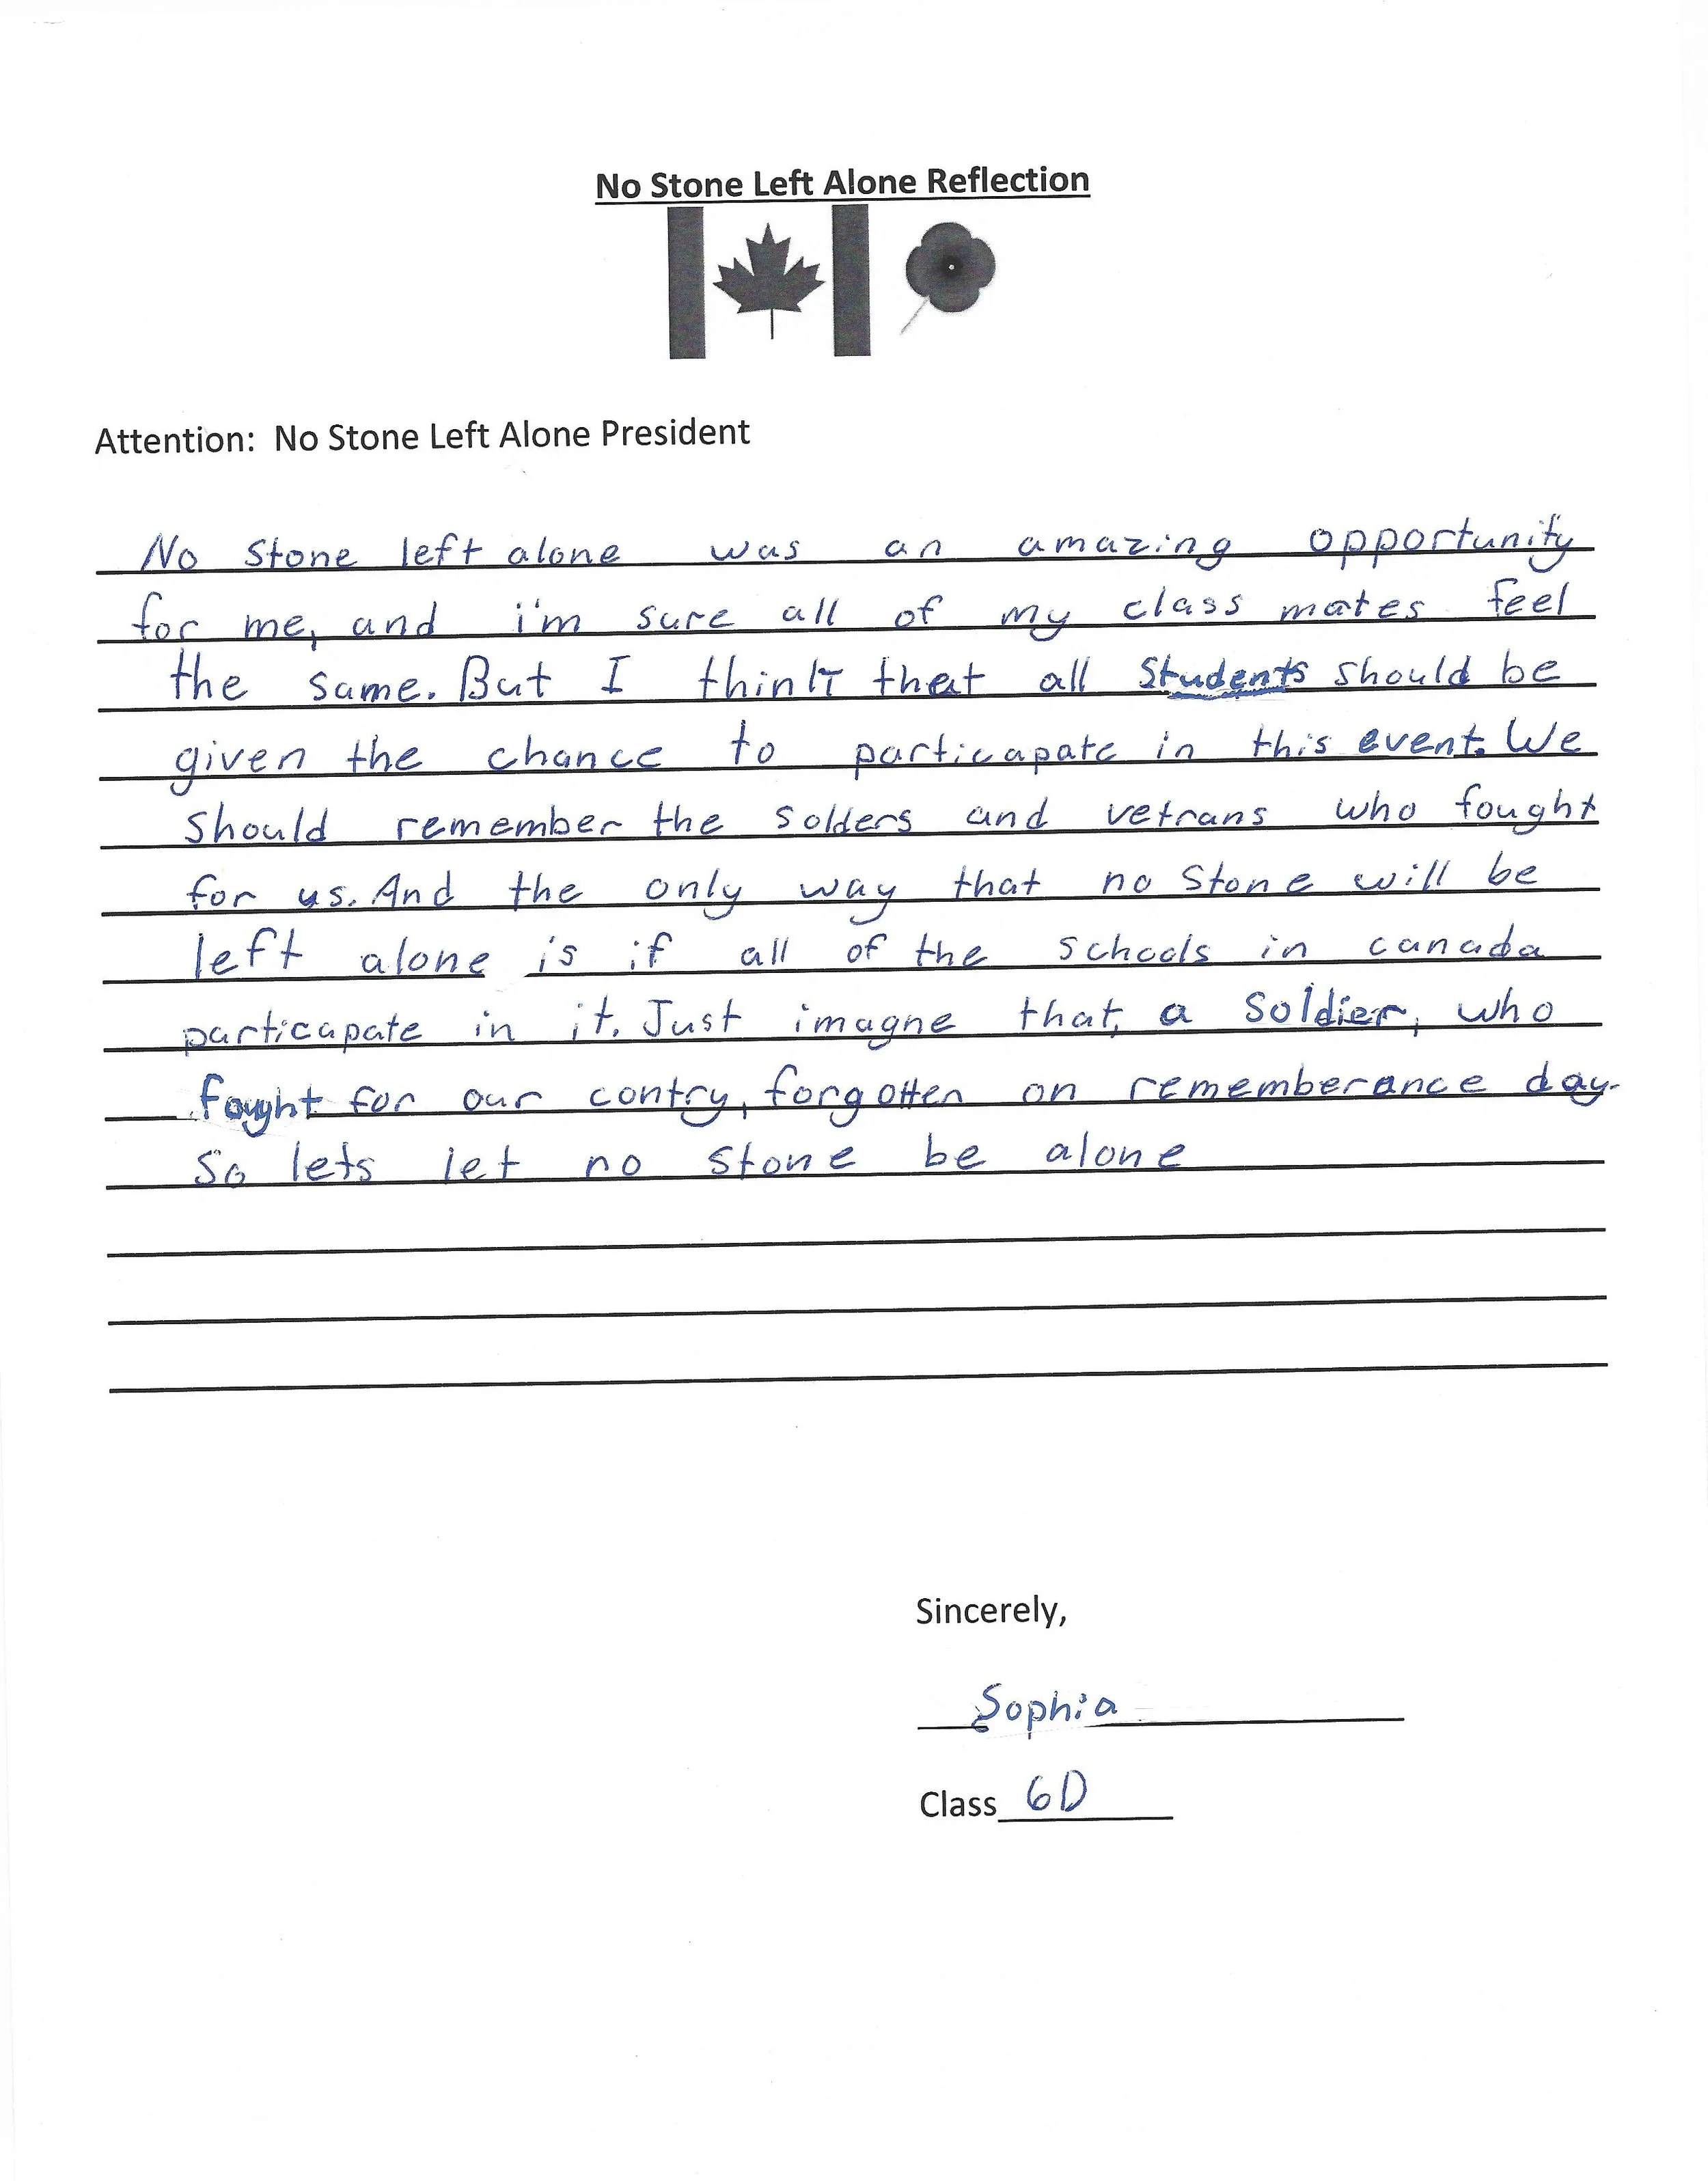 No Stone Left Alone Reflection
Attention: No Stone Left Alone President
No Stone left alone was an amazing opportunity
for me, and i'm sure all of my class mates feel
the same. But I think that all Students should be
given the chance to particapate in this event. We
should remember the solders and vetrans who fought
for us. And the only way that no stone will be
left alone is if all of the schools in canada
particapate in it. Just imagne that, a soldier, who
fought for our contry, forgotten on rememberance day.
So lets let no stone be alone
Sincerely,
Sophia
Class 6D